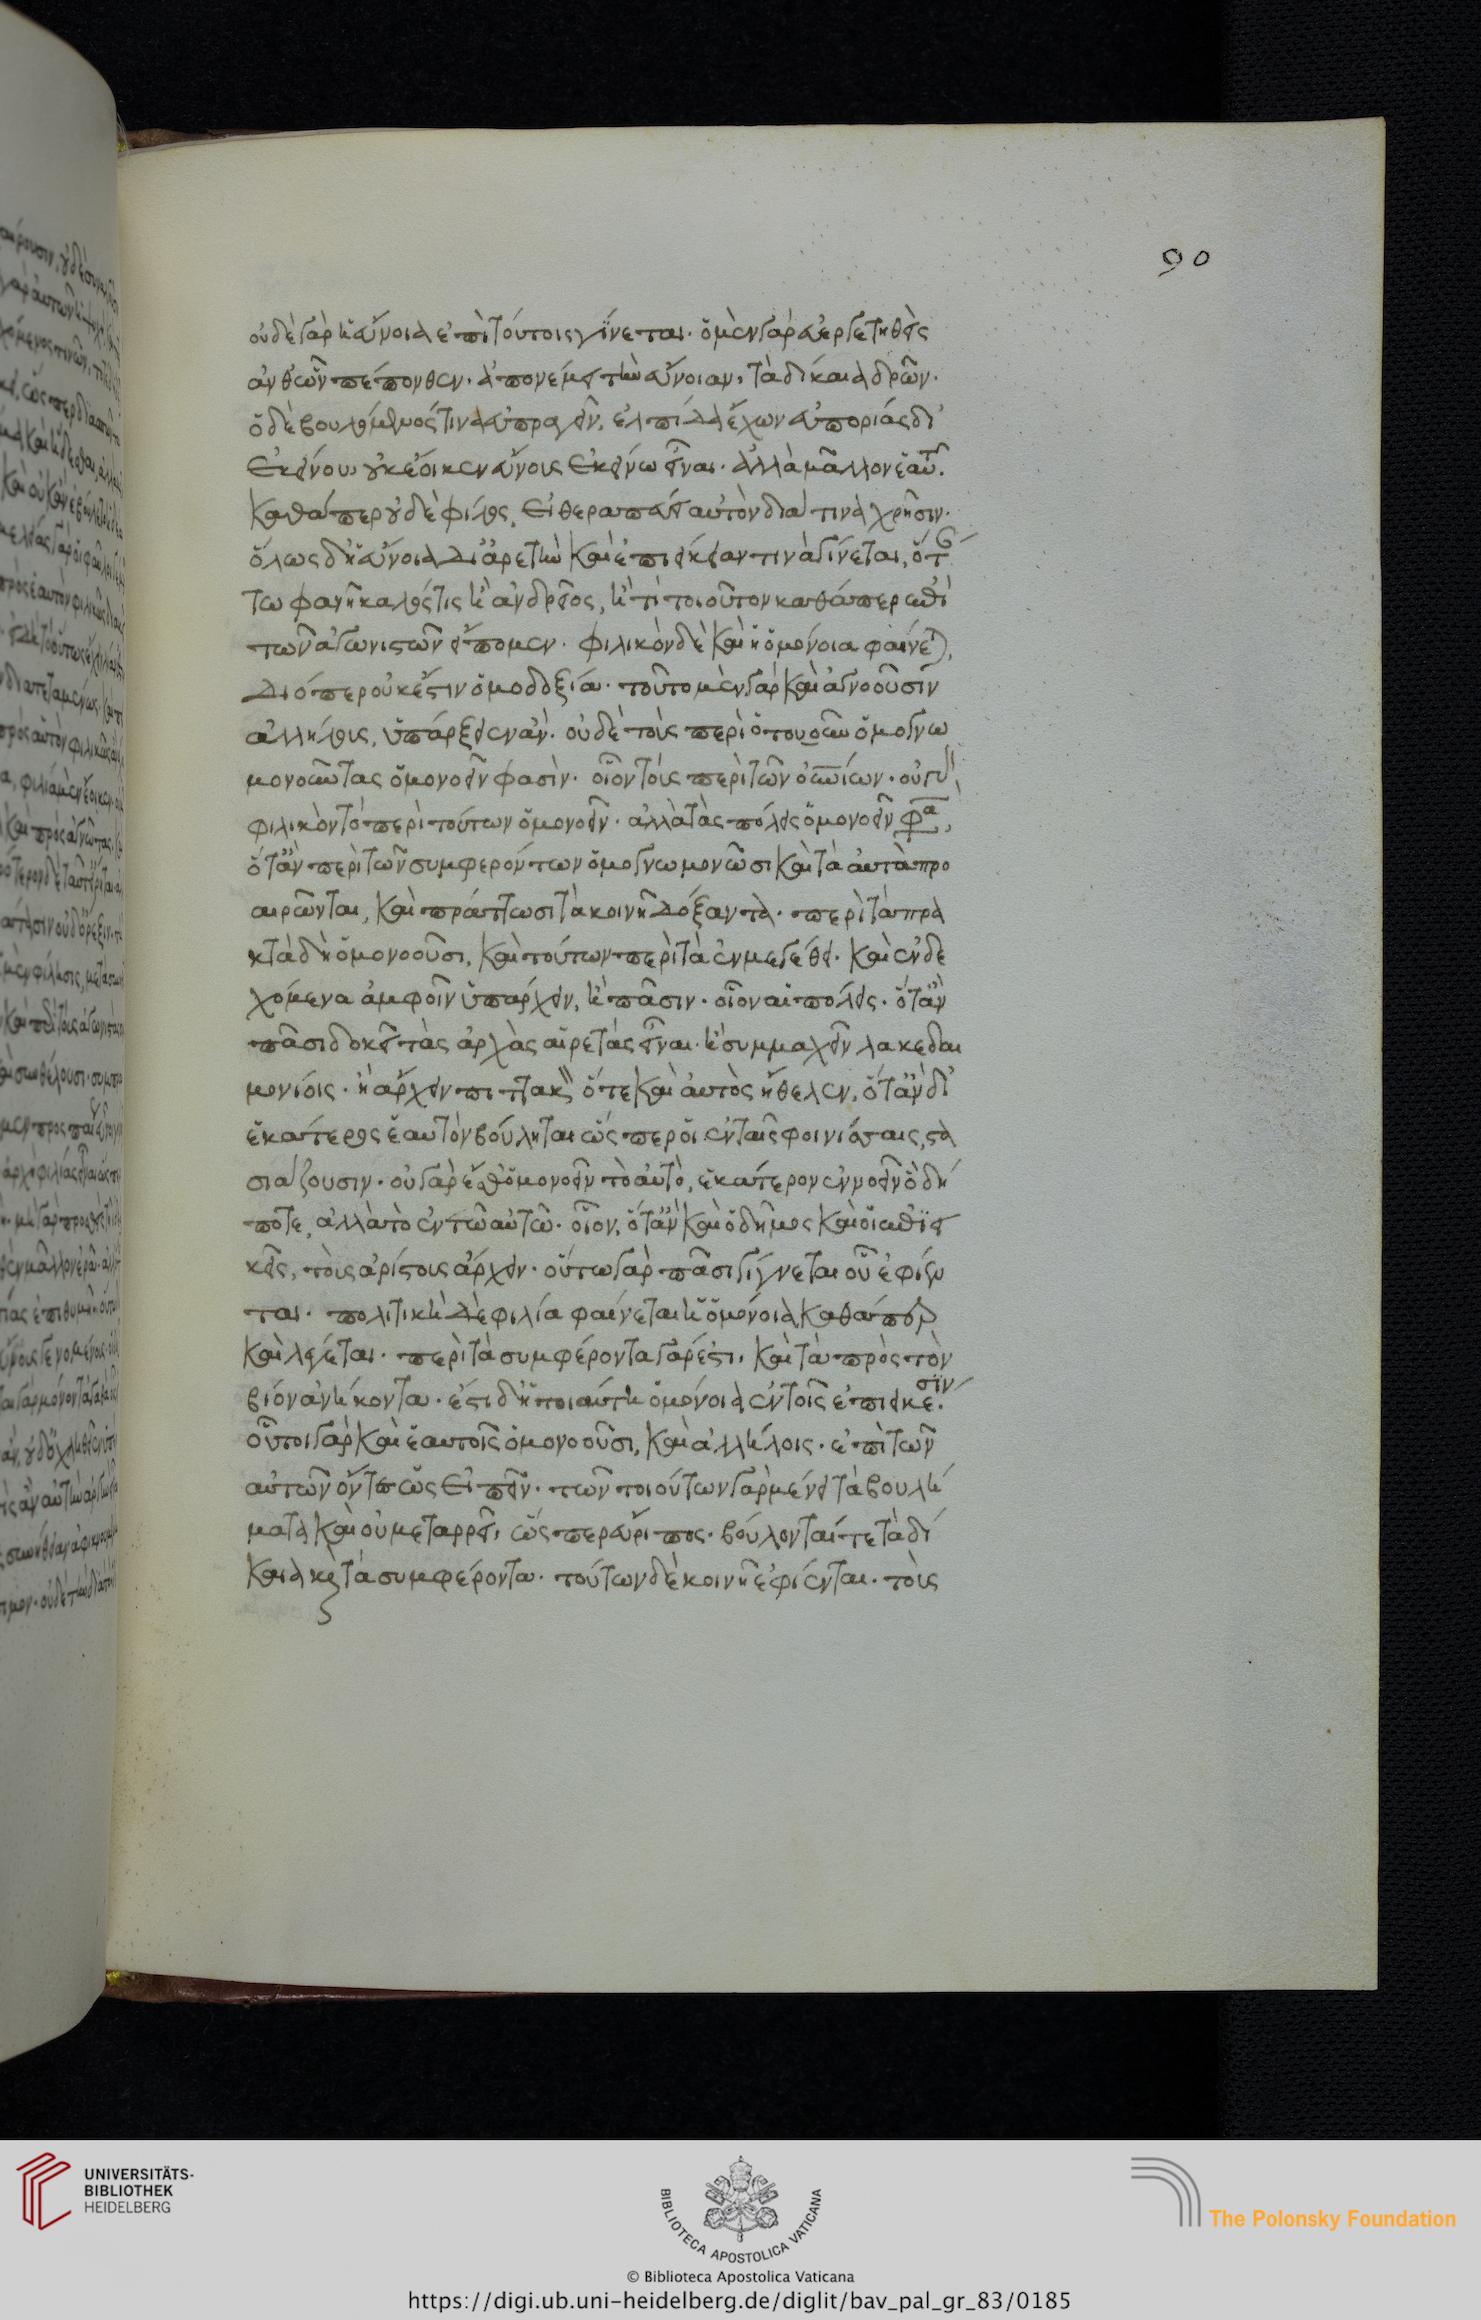 90
οὐδὲ γὰρ ἡ εὔνοια ἐπὶ τούτοις γίνεται. ὁ μὲν γὰρ εὐεργετηθεὶς
ἀνθ᾽ ὧν πέπονθεν. ἀπονέμει τὴν εὔνοιαν, τὰ δίκαια δρῶν.
ὁ δὲ βουλόμενός τινα εὐπραγεῖν, ἐλπίδα ἔχων εὐπορίας δι᾽
ἐκείνου οὐκ ἔοικεν εὔνους ἐκείνω εἶναι. ἀλλὰ μᾶλλον ἑαυτῶ.
καθάπερ οὐδὲ φίλος, εἰ θεραπεύει αὐτὸν διά τινα χρῆσιν.
ὅλως δ᾽ ἡ εὔνοια δι᾽ ἀρετὴν καὶ ἐπιείκειάν τινα γίνεται, ὅταν
τω φανῆ καλός τις ἢ ἀνδρεῖος, ἤ τι τοιοῦτον καθάπερ ἐπὶ
τῶν ἀγωνιστῶν εἴπομεν. φιλικὸν δὲ καὶ ἡ ὁμόνοια φαίνεται,
διόπερ οὐκ ἔστιν ὁμοδοξία. τοῦτο μὲν γὰρ καὶ ἀγνοοῦσιν
ἀλλήλους, ὑπάρξειεν ἄν. οὐδὲ τοὺς περὶ ὁτουοῦν ὁμογνω
μονοῦντας ὁμονοεῖν φασίν. οἷον τοὺς περὶ τῶν οὐρανίων. οὐ γὰρ
φιλικὸν τὸ περὶ τούτων ὁμονοεῖν. ἀλλὰ τὰς πόλεις ὁμονοεῖν φασιν,
ὅταν περὶ τῶν συμφερόντων ὁμογνωμονῶσι καὶ τὰ αὐτὰ προ
αιρῶνται, καὶ πράττωσι τὰ κοινῆ δόξαντα. περὶ τὰ πρα
κτὰ δὴ ὁμονοοῦσι, καὶ τούτων περὶ τὰ ἐν μεγέθει. καὶ ἐνδε
χόμενα ἀμφοῖν ὑπάρχειν, ἢ πᾶσιν. οἷον αἱ πόλεις. ὅταν
πᾶσι δοκεῖ τὰς ἀρχὰς αἱρετὰς εἶναι. ἢ συμμαχεῖν λακεδαι
μονίοις. ἢ ἄρχειν πιττακὸν ὅτε καὶ αὐτὸς ἤθελεν, ὅταν δ᾽
ἑκάτερος ἑαυτὸν βούληται ὥσπερ οἱ ἐν ταῖς φοινίσσαις, στα
σιάζουσιν. οὐ γάρ ἐσθ᾽ ὁμονοεῖν τὸ αὐτὸ, ἑκάτερον ἐννοεῖν ὁδή
ποτε, ἀλλὰ τὸ ἐν τῶ αὐτῶ. οἷον, ὅταν καὶ ὁ δῆμος καὶ οἱ ἐπιει
κεῖς, τοὺς ἀρίστους ἄρχειν. οὕτω γὰρ πᾶσι γίγνεται οὗ ἐφίεν
ται. πολιτικὴ δὲ φιλία φαίνεται ἡ ὁμόνοια καθάπερ
καὶ λέγεται. περὶ τὰ συμφέροντα γάρ ἐστι, καὶ τὰ πρὸς τὸν
βίον ἀνήκοντα. ἔστι δ᾽ ἡ τοιαύτη ὁμόνοια ἐν τοῖς ἐπιεικέσιν.
οὗτοι γὰρ καὶ ἑαυτοῖς ὁμονοοῦσι, καὶ ἀλλήλοις. ἐπὶ τῶν
αὐτῶν ὄντες ὡς εἰπεῖν. τῶν τοιούτων γὰρ μένει τὰ βουλή
ματα καὶ οὐ μεταρρεῖ, ὥσπερ εὔριπος. βούλονταί τε τὰ δί
καια καὶ τὰ συμφέροντα. τούτων δὲ κοινῆ ἐφίενται. τοὺς
UNIVERSITÄTS-
BIBLIOTHEK
HEIDELBERG
BIBLIOTECA APOSTOLICA VATICANA
© Biblioteca Apostolica Vaticana
The Polonsky Foundation
https://digi.ub.uni-heidelberg.de/diglit/bav_pal_gr_83/0185